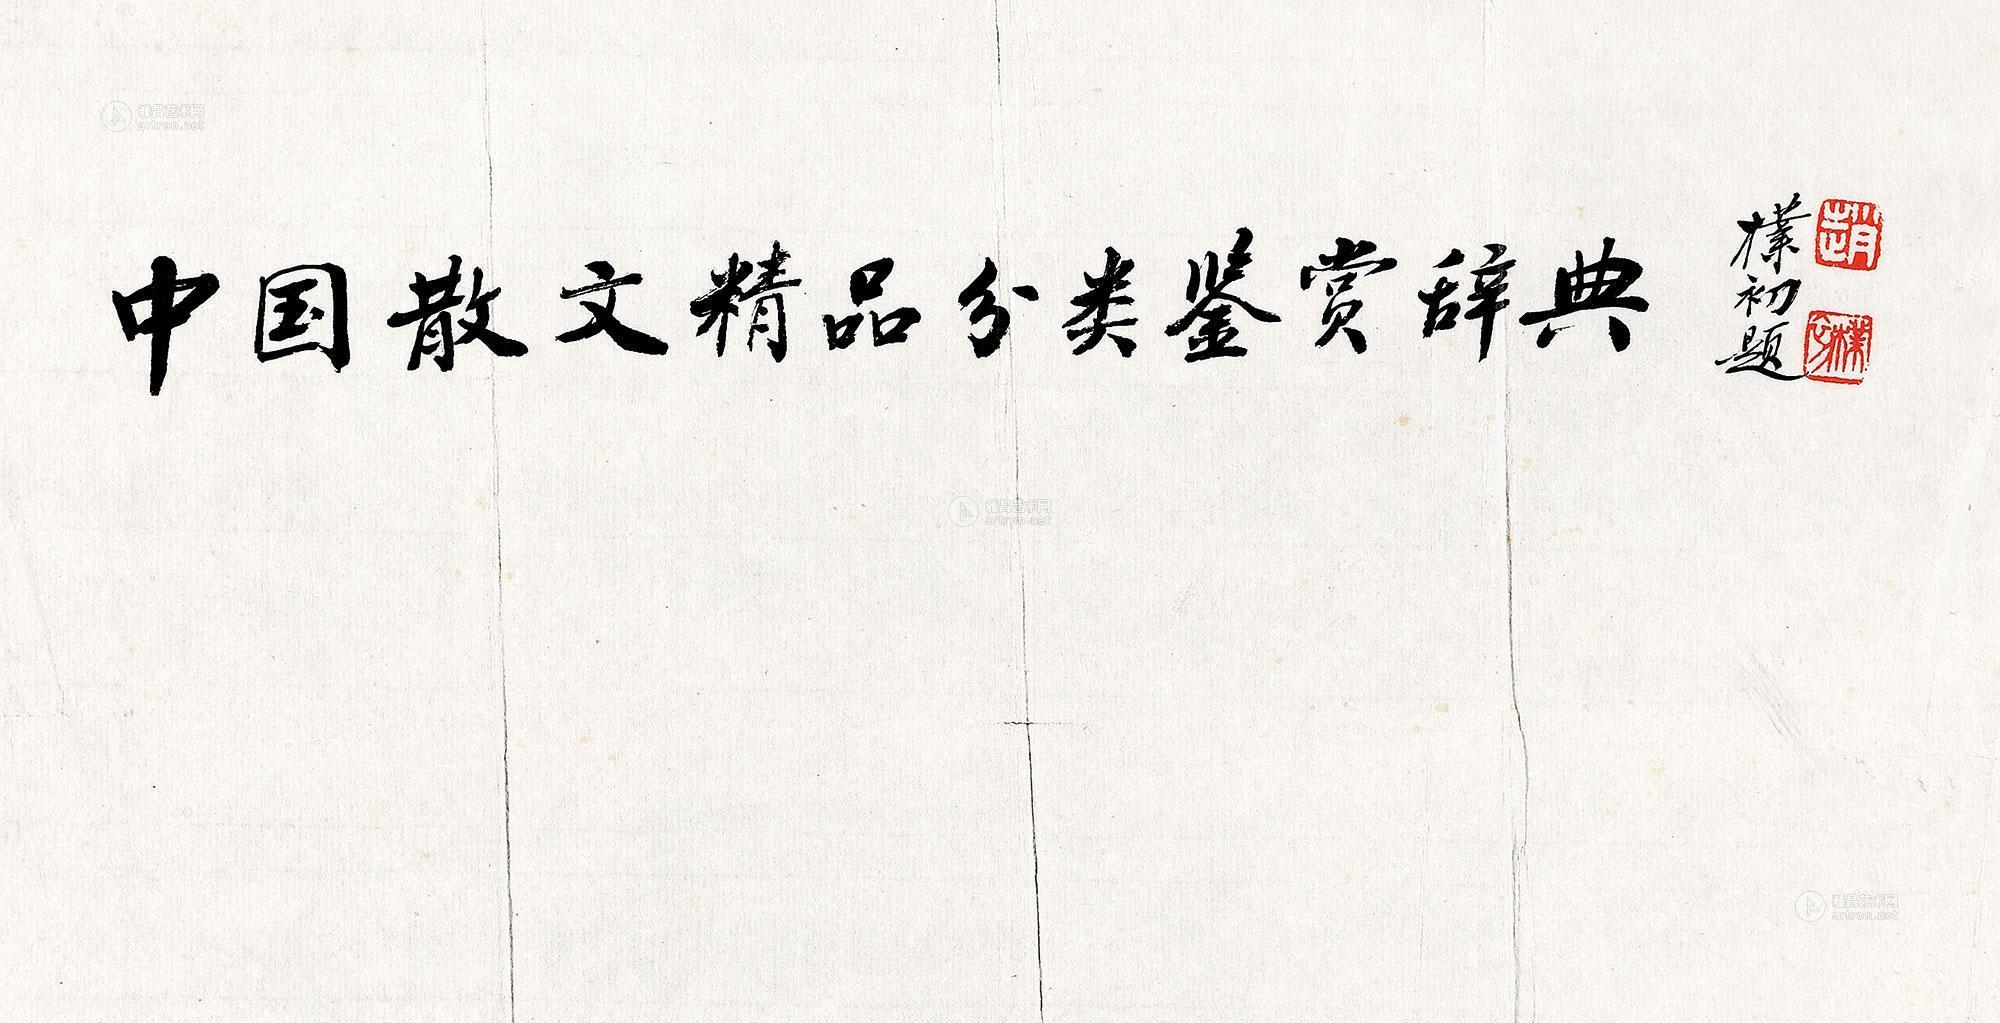 中国散文精品分类鉴赏辞典
樸初題
趙
樸初
雅昌艺术网
artron.net
雅昌艺术网
artron.net
雅昌艺术网
artron.net